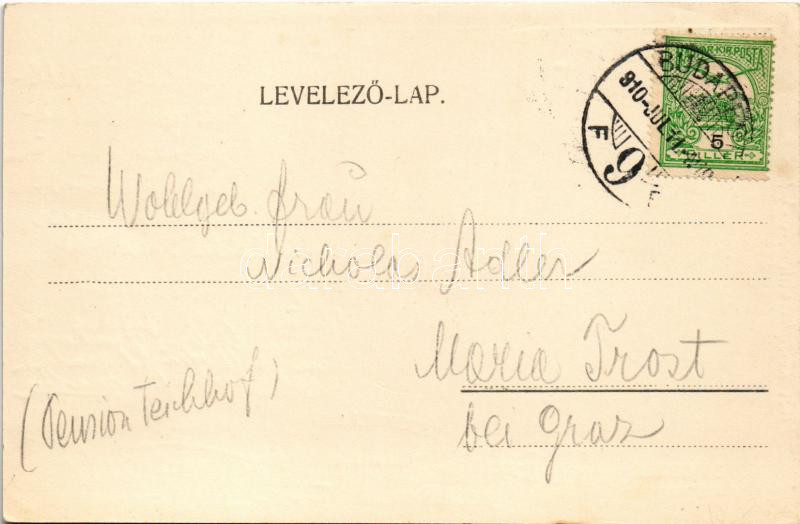 LEVELEZŐ-LAP.
MAGYAR KIR. POSTA
5
FILLÉR
BUDAPEST
910-JUL.11
F
9
Wohlgeb. Frau
Nicholas Adler
Maria Trost
bei Graz
(Pension Teichhof)
darabanth